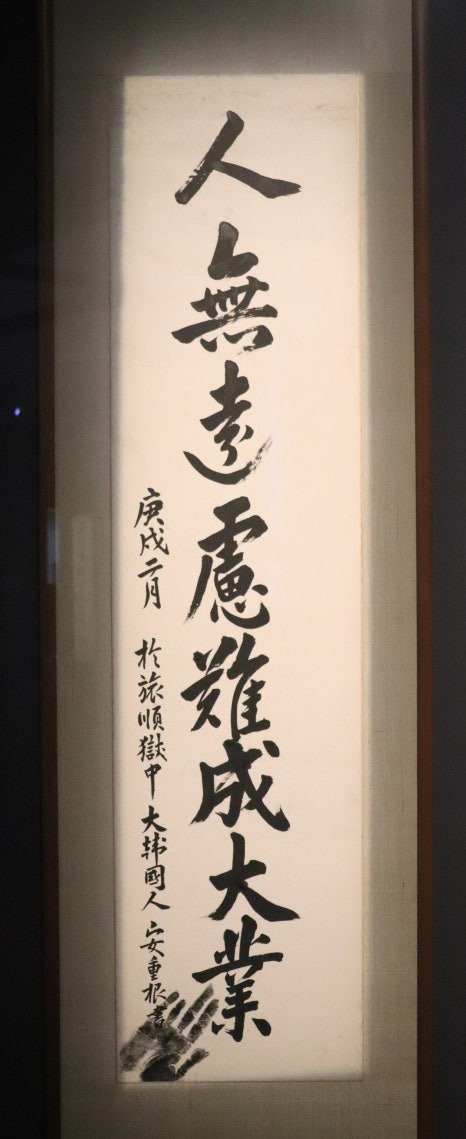 人無遠慮難成大業
庚戌二月 於旅順獄中 大韓國人 安重根 書